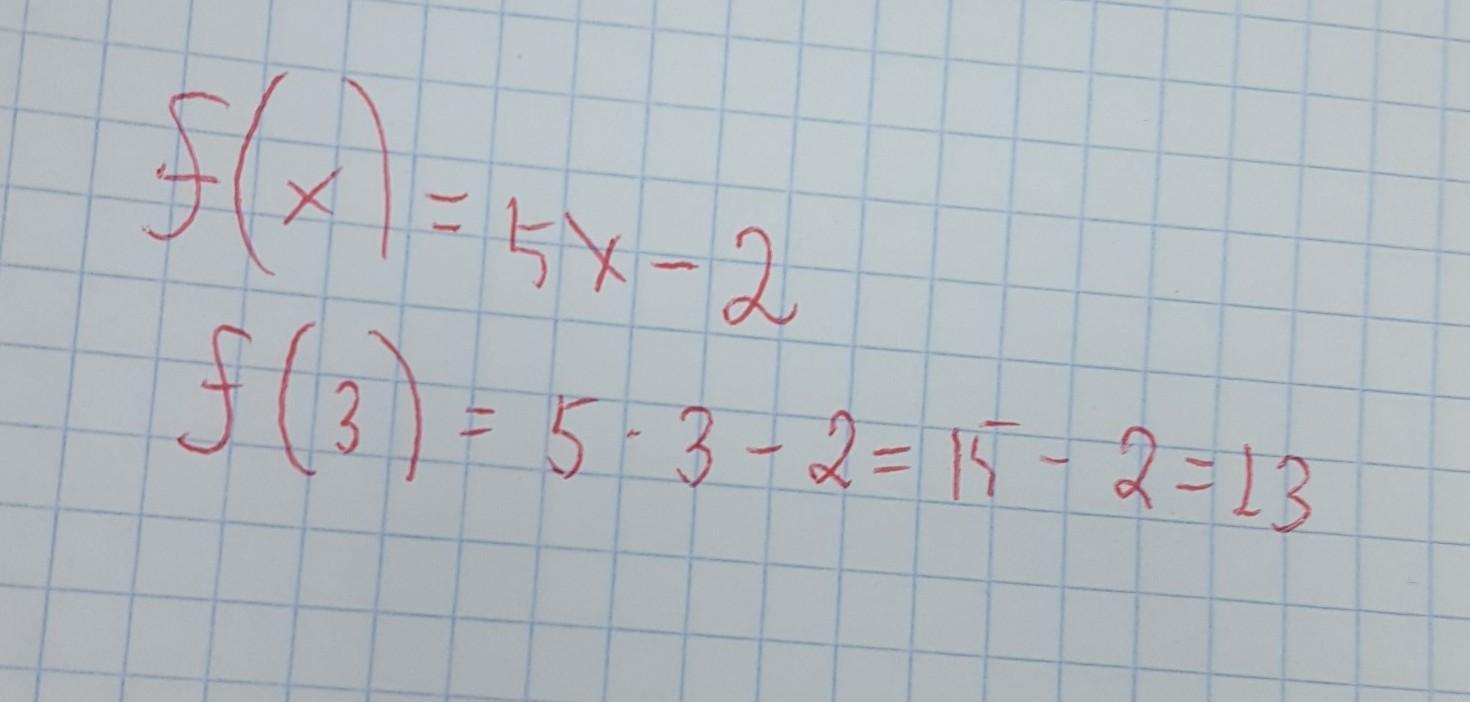 f(x) = 5x - 2
f(3) = 5 · 3 - 2 = 15 - 2 = 13